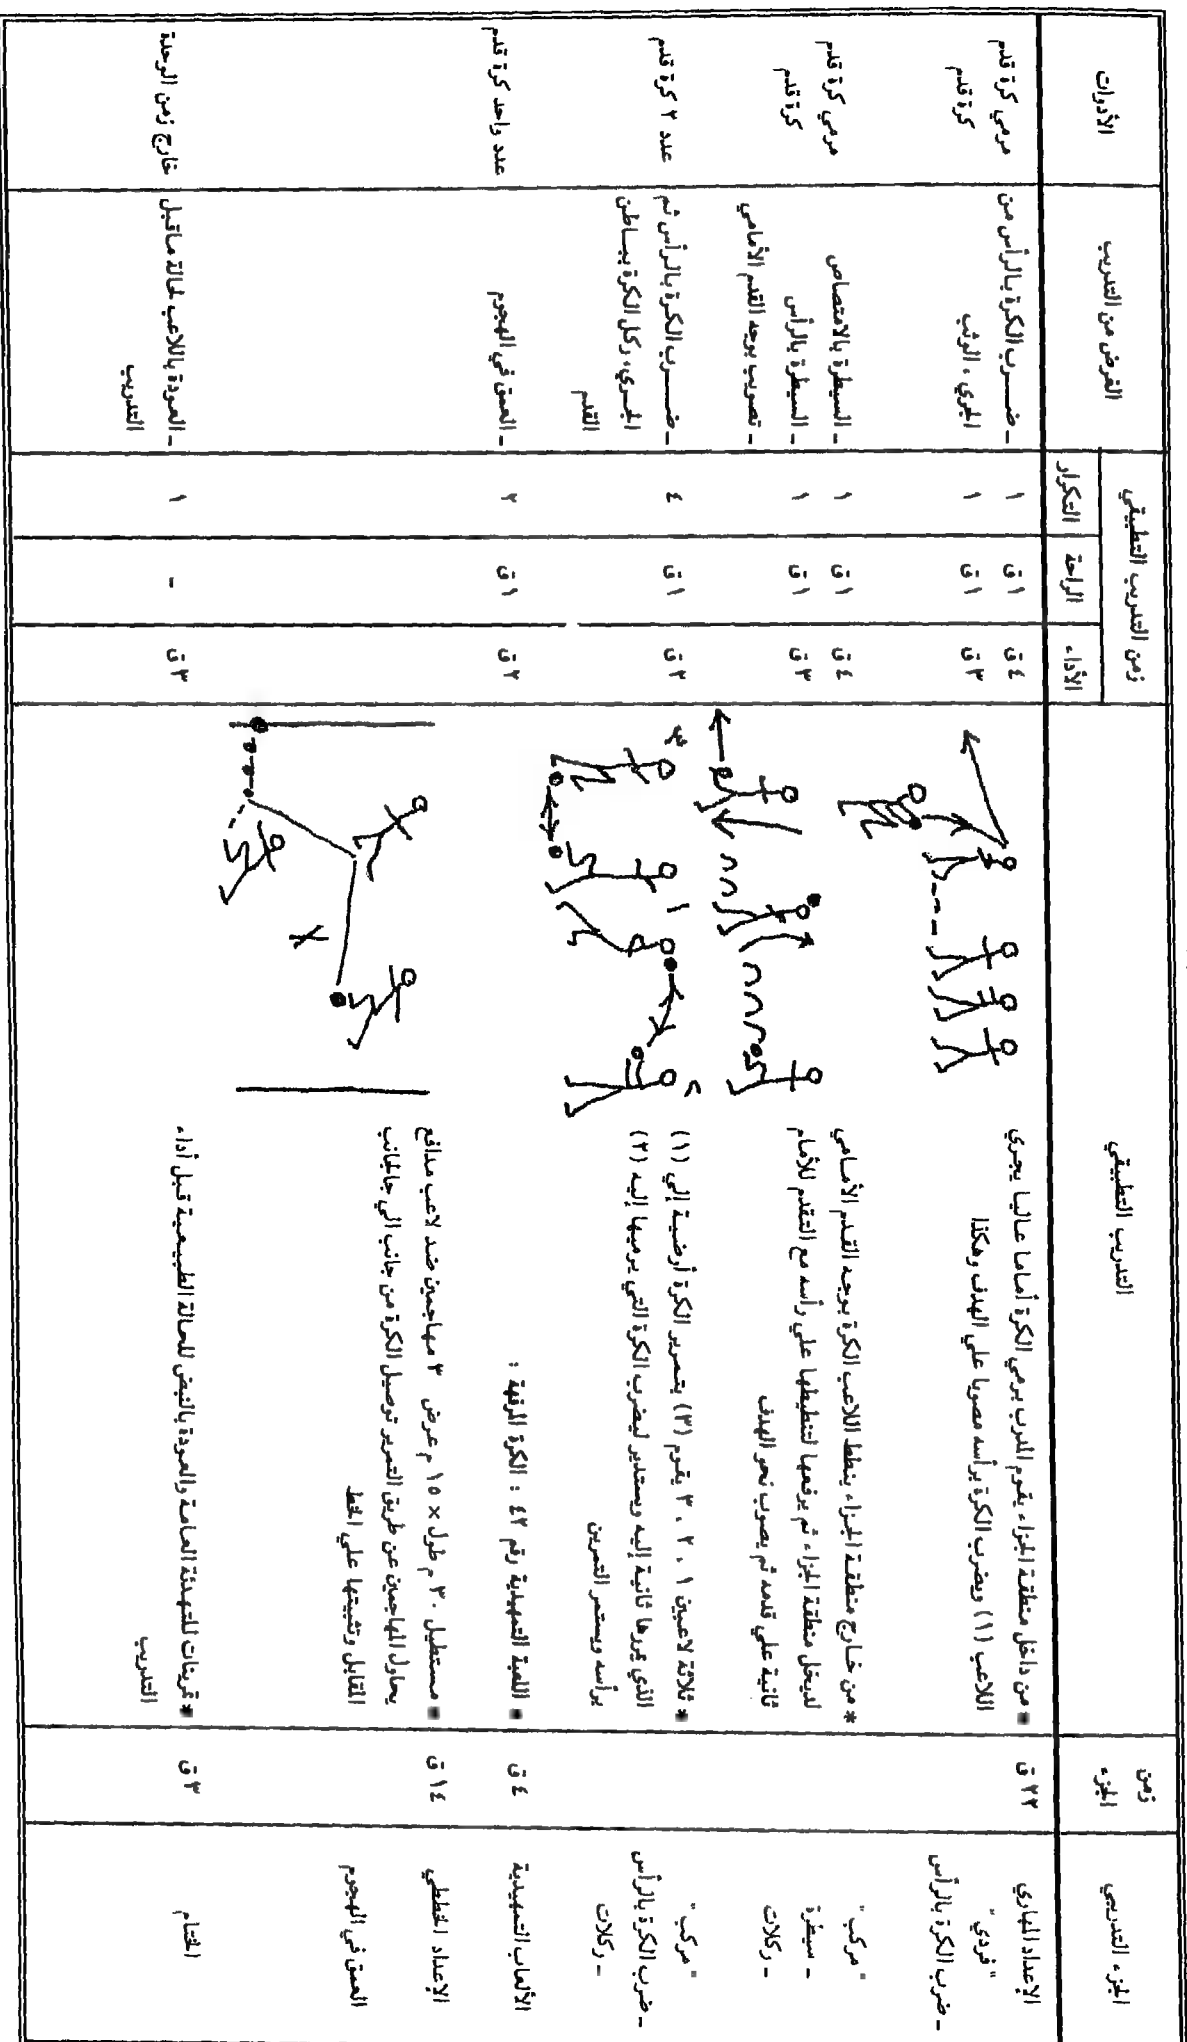 الجزء التدريبي
زمن
الجزء
التدريب التطبيقي
زمن التدريب التطبيقي
الأداء
الراحة
التكرار
الغرض من التدريب
الأدوات
الإعداد المهاري
" فردي "
ـ ضرب الكرة بالرأس
٢٢ ق
* من داخل منطقة الجزاء يقوم المدرب برمي الكرة أماما عاليا يجري
اللاعب (١) ويضرب الكرة برأسه مصوبا علي الهدف وهكذا
٤ ق
٣ ق
١ ق
١ ق
١
١
ـ ضـــرب الكرة بالرأس من
الجري ، الوثب
مرمي كرة قدم
كرة قدم
" مركب "
ـ سيطرة
ـ ركلات
* من خارج منطقة الجزاء ينطط اللاعب الكرة بوجه القدم الأمامي
لديخل منطقة الجزاء ثم يرفعها لتنطيطها علي رأسه مع التقدم للأمام
ثانية علي قدمه ثم يصوب نحو الهدف
٤ ق
٣ ق
١ ق
١ ق
١
١
ـ السيطرة بالامتصاص
ـ السيطرة بالرأس
ـ تصويب بوجه القدم الأمامي
مرمي كرة قدم
كرة قدم
" مركب "
ـ ضرب الكرة بالرأس
ـ ركلات
٣
١
٢
* ثلاثة لاعبين ١ ، ٢ ، ٣ يقوم (٣) بتمرير الكرة أرضية إلي (١)
الذي يمررها ثانية إليه ويستدير ليضرب الكرة التي يرميها إليه (٢)
برأسه ويستمر التمرين
٣ ق
١ ق
٤
ـ ضـــرب الكرة بالرأس ثم
الجري، ركل الكرة بباطن
القدم
عدد ٢ كرة قدم
الألعاب التمهيدية
٤ ق
* اللعبة التمهيدية رقم ٤٢ : الكرة المرفهة :
٢ ق
١ ق
٢
ـ العمق في الهجوم
عدد واحد كرة قدم
الإعداد الخططي
العمق في الهجوم
١٤ ق
* مستطيل ٣٠ م طول × ١٥ م عرض ٣ مهاجمين ضد لاعب مدافع
يحاول المهاجمين عن طريق التمرير توصيل الكرة من جانب الي جالجانب
المقابل وتثبيتها علي الخط
الختام
٣ ق
* تمرينات للتهدئة العامة والعودة بالنبض للحالة الطبيعية قبل أداء
التدريب
٣ ق
-
١
ـ العودة باللاعب لحالة ماقبل
التدريب
خارج زمن الوحدة